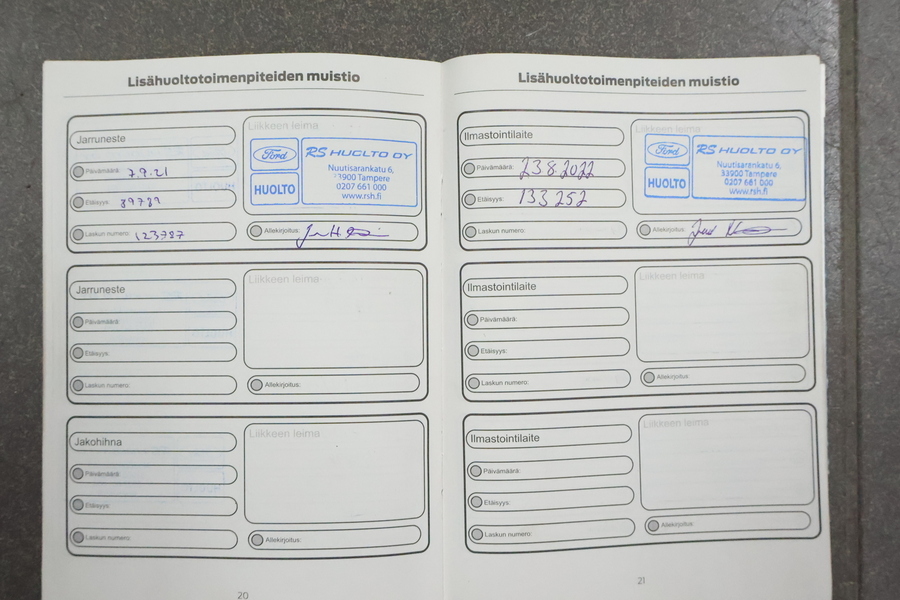 Lisähuoltotoimenpiteiden muistio
Jarruneste
Päivämäärä: 7.9.21
Etäisyys: 89789
Laskun numero: 123787
Liikkeen leima
Ford
HUOLTO
RS HUOLTO OY
Nuutisarankatu 6,
33900 Tampere
0207 661 000
www.rsh.fi
Allekirjoitus:
Jarruneste
Päivämäärä:
Etäisyys:
Laskun numero:
Liikkeen leima
Allekirjoitus:
Jakohihna
Päivämäärä:
Etäisyys:
Laskun numero:
Liikkeen leima
Allekirjoitus:
20
Lisähuoltotoimenpiteiden muistio
Ilmastointilaite
Päivämäärä: 23.8.2022
Etäisyys: 133252
Laskun numero:
Liikkeen leima
Ford
HUOLTO
RS HUOLTO OY
Nuutisarankatu 6,
33900 Tampere
0207 661 000
www.rsh.fi
Allekirjoitus:
Ilmastointilaite
Päivämäärä:
Etäisyys:
Laskun numero:
Liikkeen leima
Allekirjoitus:
Ilmastointilaite
Päivämäärä:
Etäisyys:
Laskun numero:
Liikkeen leima
Allekirjoitus:
21